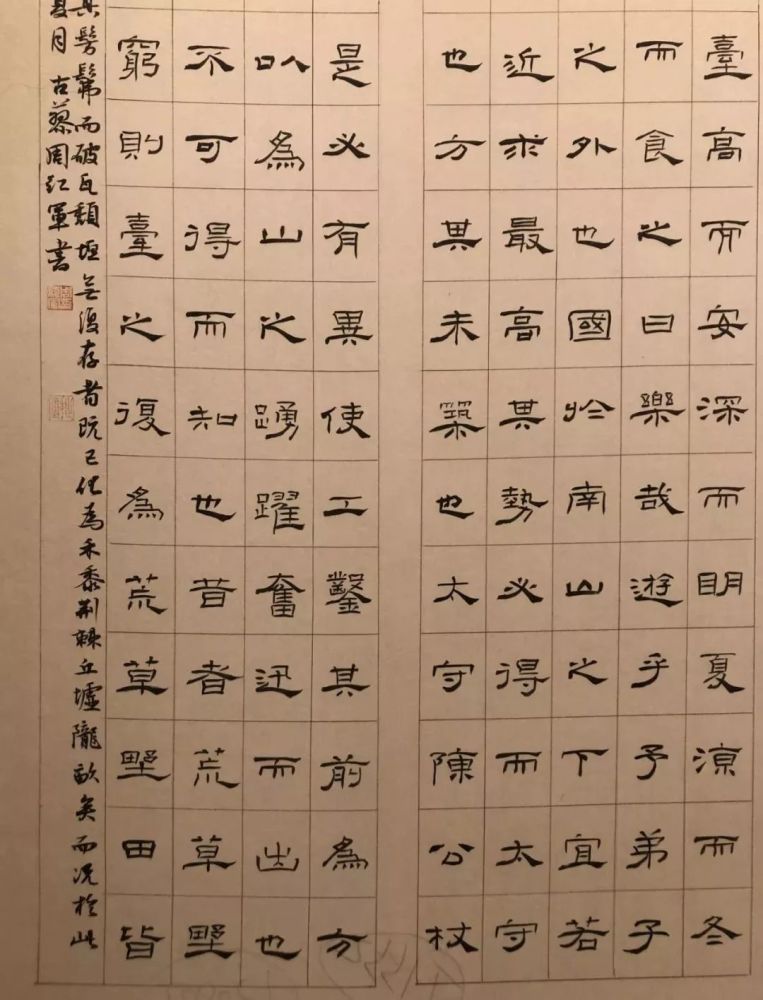 臺高而安深而明夏凉而冬
而食之曰樂哉遊乎予弟子
之外也國於南山之下宜若
近求最高其勢必得而太守
也方其未築也太守陳公杖
是必有異使工鑿其前為方
以為山之踴躍奮迅而出也
不可得而知也昔者荒草野
窮則臺之復為荒草野田皆
其髣髴而破瓦頹垣無復存者既已化為禾黍荊棘丘墟隴畝矣而況於此
夏月 古蔡周紅軍書